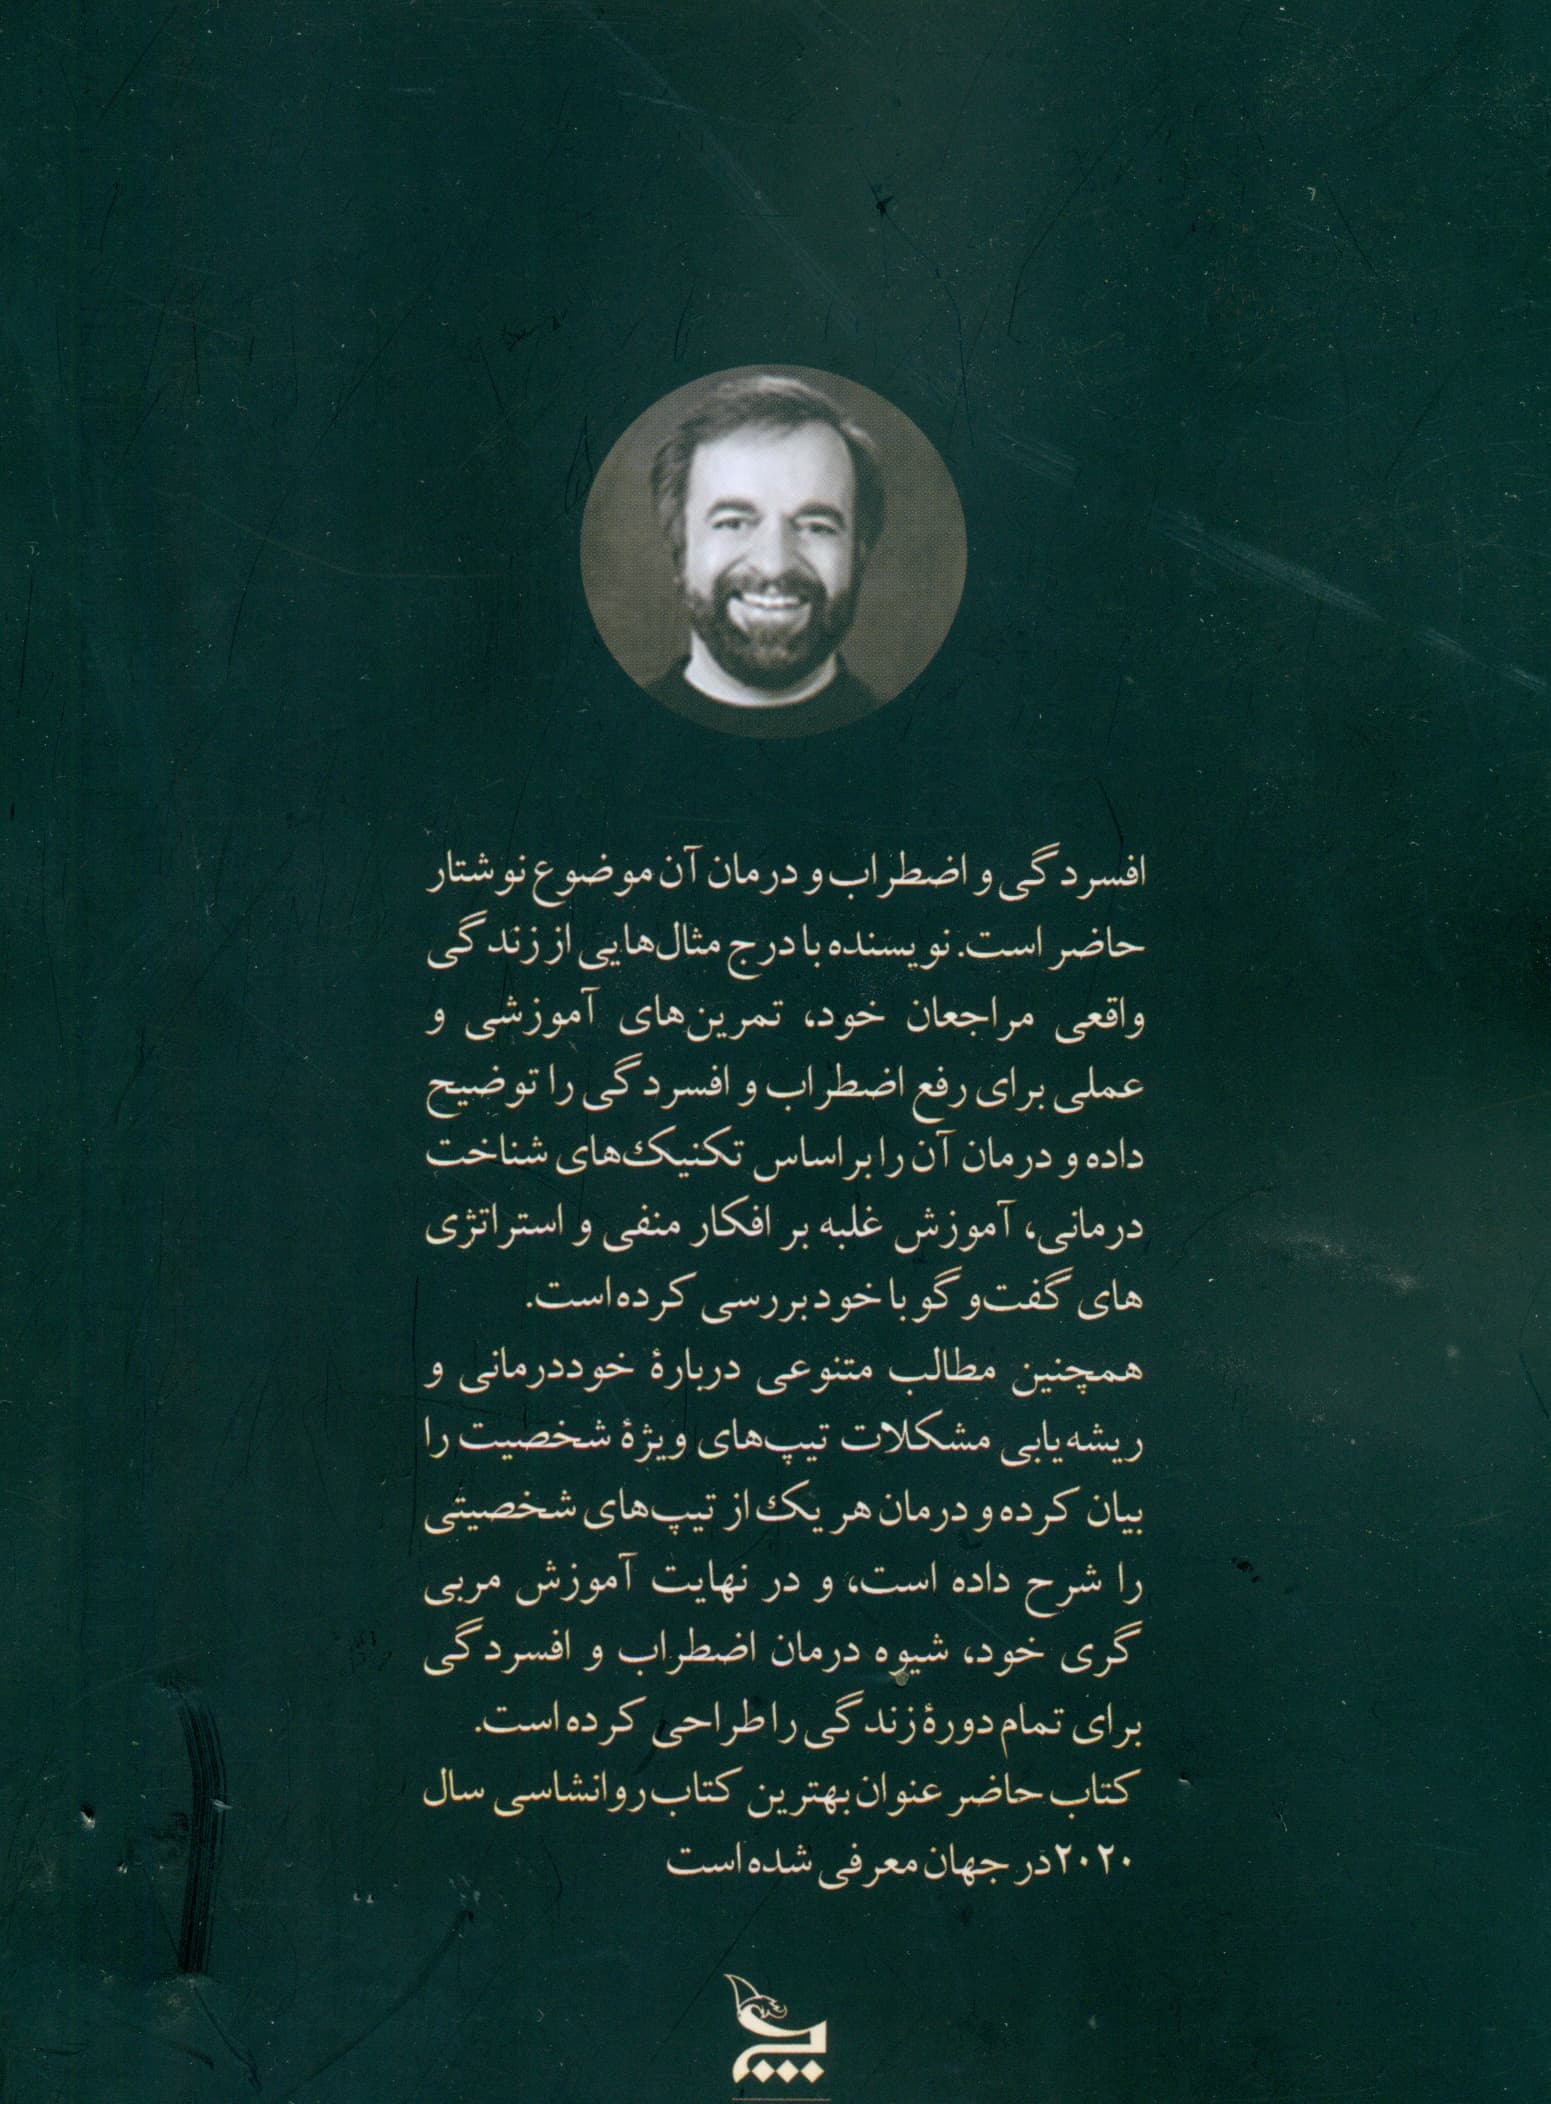 افسردگی و اضطراب و درمان آن موضوع نوشتار
حاضر است. نویسنده با درج مثال‌هایی از زندگی
واقعی مراجعان خود، تمرین‌های آموزشی و
عملی برای رفع اضطراب و افسردگی را توضیح
داده و درمان آن را براساس تکنیک‌های شناخت
درمانی، آموزش غلبه بر افکار منفی و استراتژی
های گفت‌وگو با خود بررسی کرده است.
همچنین مطالب متنوعی دربارهٔ خوددرمانی و
ریشه‌یابی مشکلات تیپ‌های ویژهٔ شخصیت را
بیان کرده و درمان هر یک از تیپ‌های شخصیتی
را شرح داده است، و در نهایت آموزش مربی
گری خود، شیوه درمان اضطراب و افسردگی
برای تمام دورهٔ زندگی را طراحی کرده است.
کتاب حاضر عنوان بهترین کتاب روانشاسی سال
۲۰۲۰ در جهان معرفی شده است